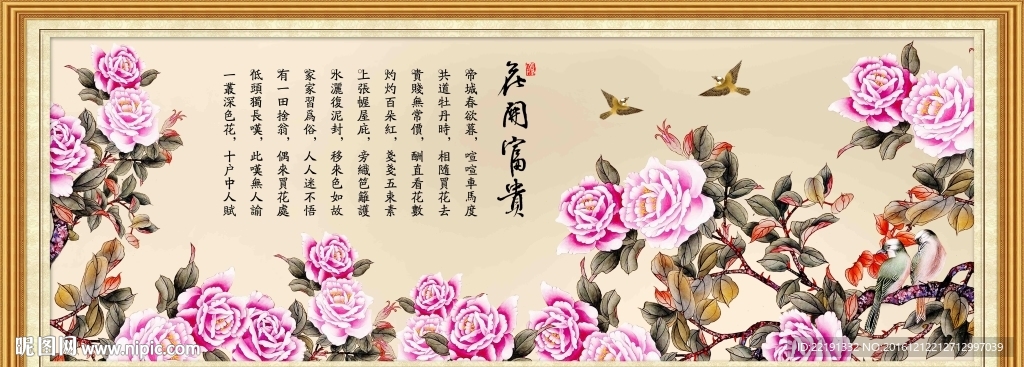 花開富貴
帝城春欲暮，喧喧車馬度
共道牡丹時，相隨買花去
貴賤無常價，酬直看花數
灼灼百朵紅，戔戔五束素
上張幄屋庇，旁織笆籬護
水灑復泥封，移來色如故
家家習為俗，人人迷不悟
有一田舍翁，偶來買花處
低頭獨長嘆，此嘆無人諭
一叢深色花，十户中人賦
昵图网 www.nipic.com
ID:22191332 NO:20161212212712997039